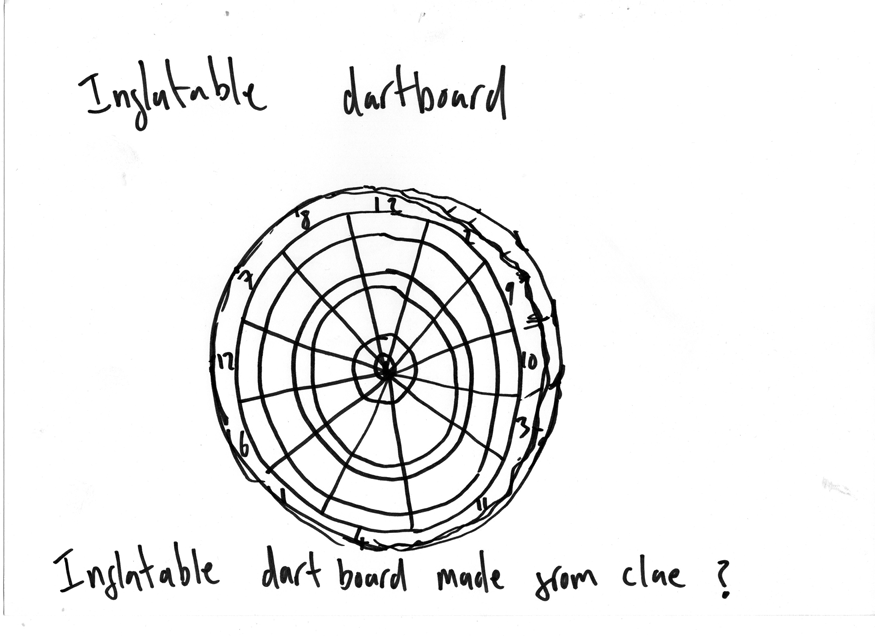 Inflatable dartboard
8
12
9
12
10
3
6
11
Inflatable dart board made from clae ?